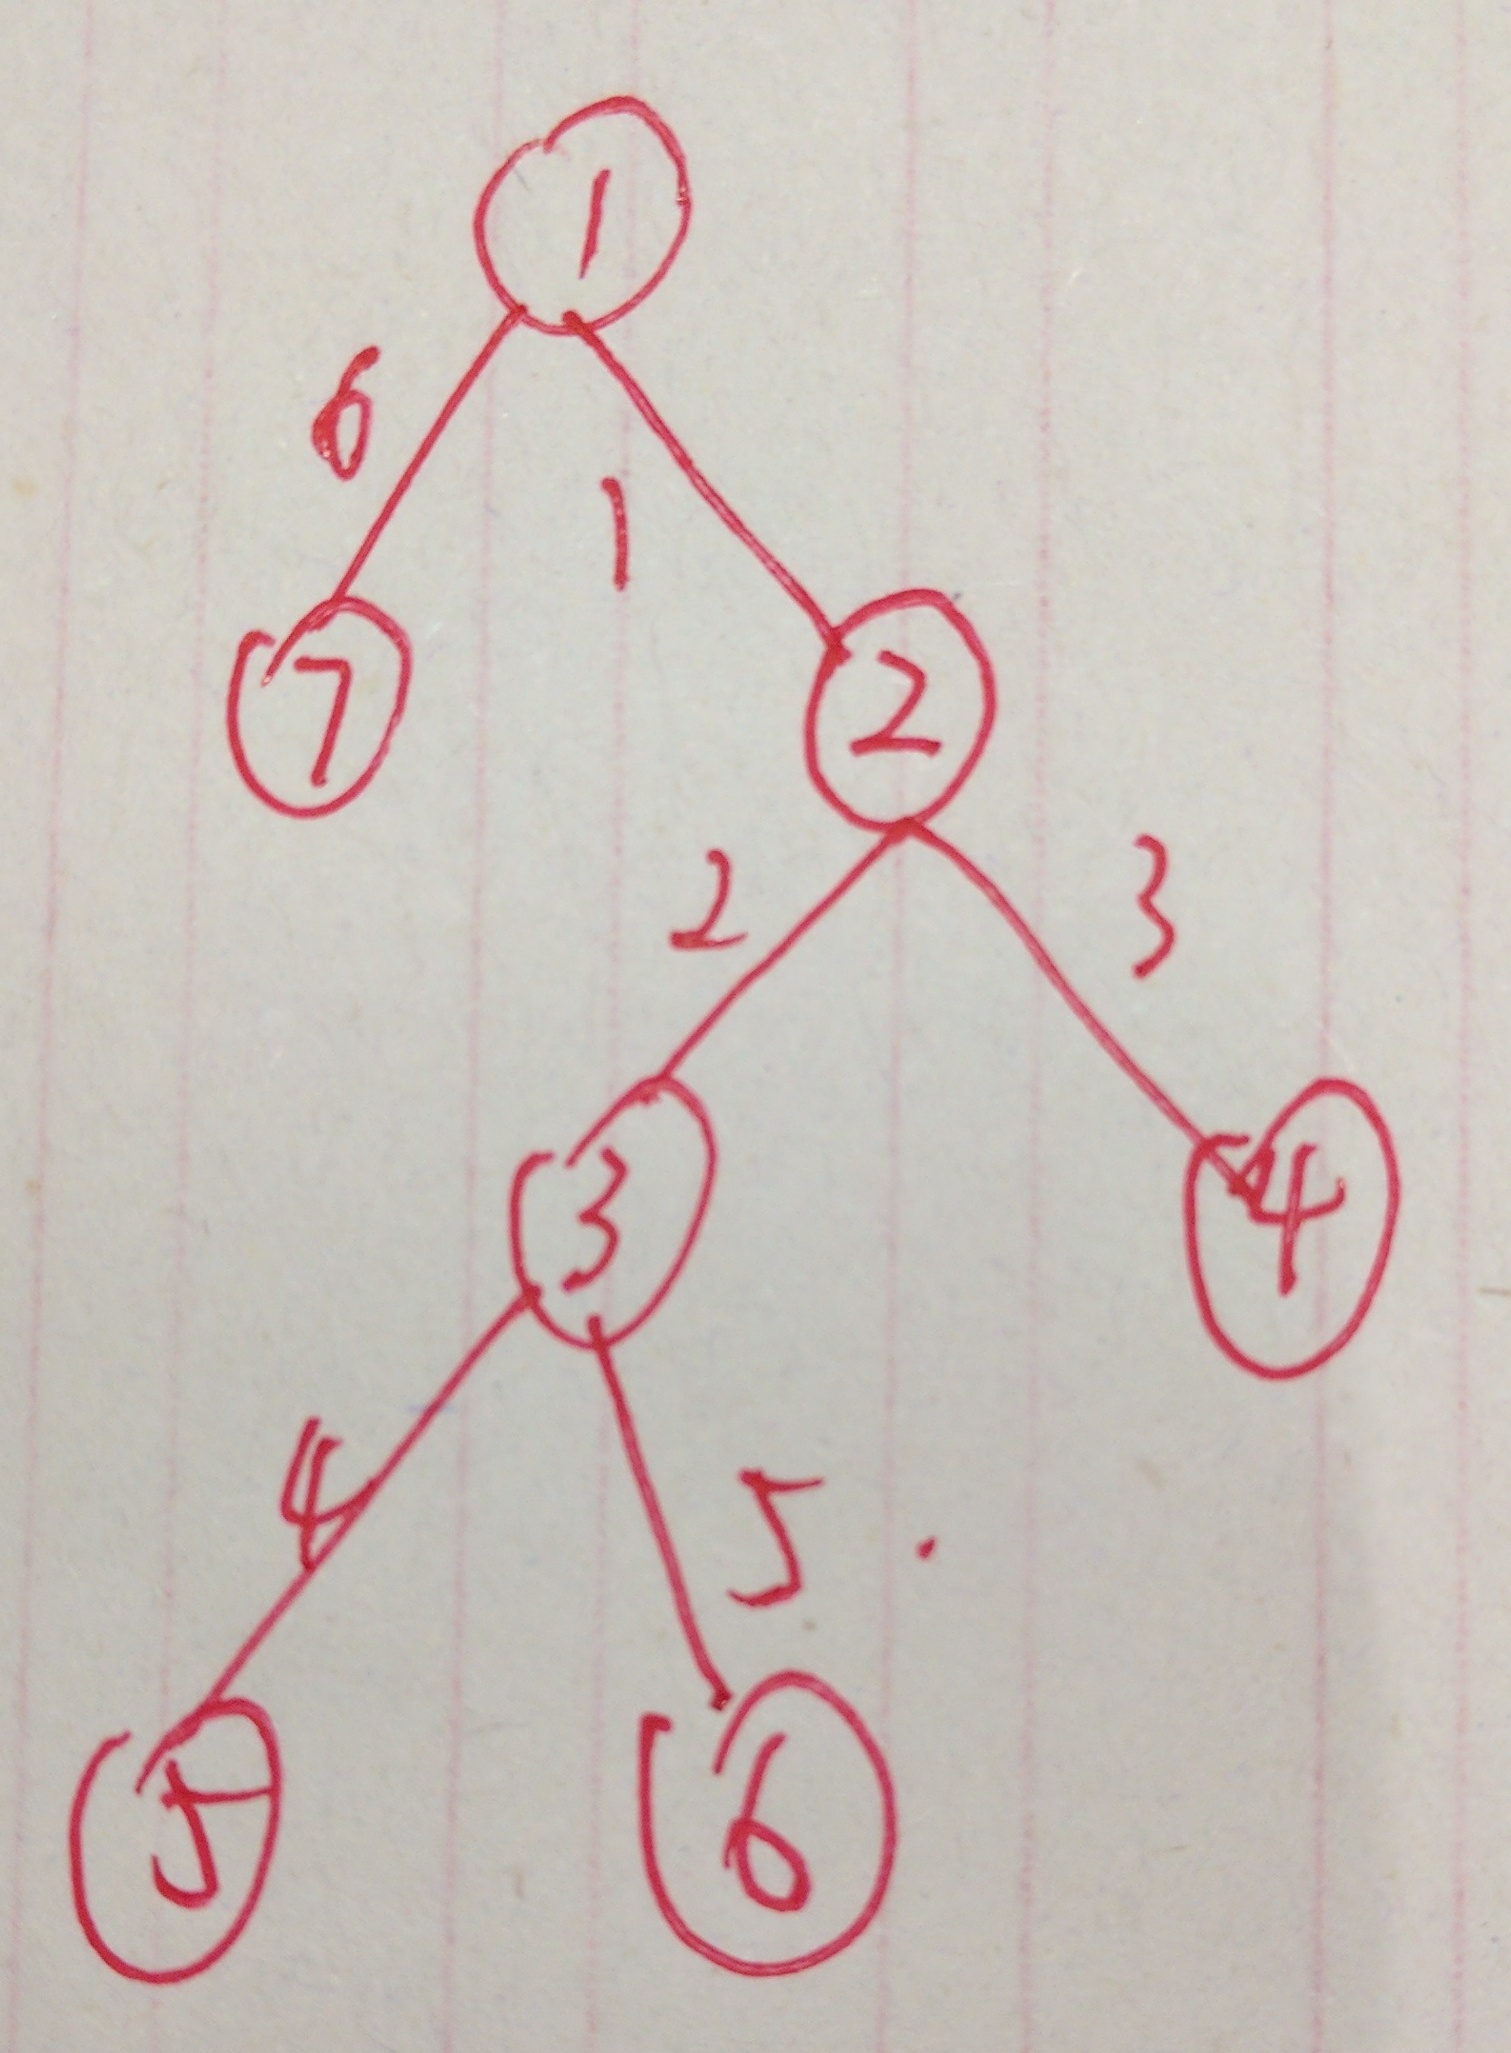 1
6
1
7
2
2
3
3
4
4
5
5
6